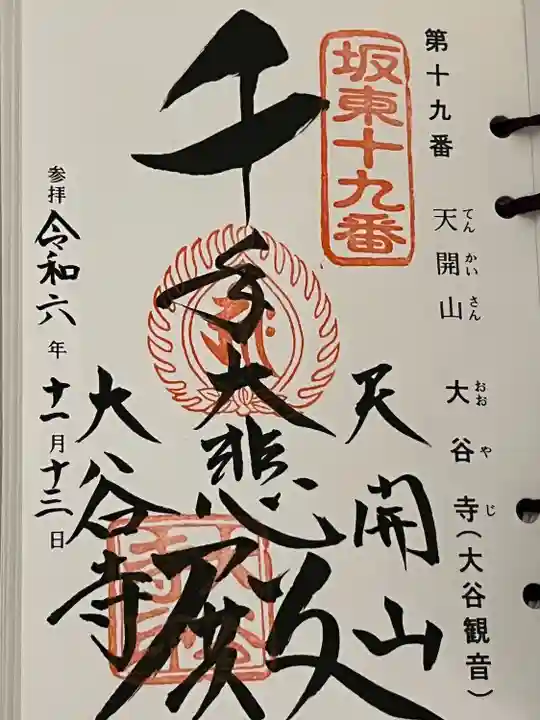 第十九番 天開山 大谷寺(大谷観音)
てんかいさん おおやじ
坂東十九番
天開山
千手大悲殿
大谷寺
参拝 令和六年 十一月十三日